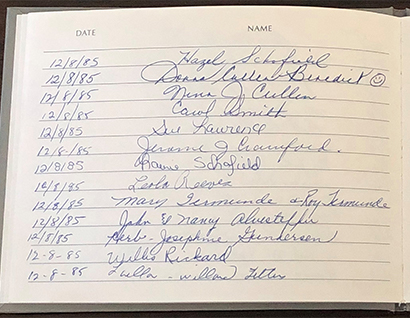 DATE NAME
12/8/85 Hazel Schofield
12/8/85 Donna Cullen Benedict ☺
12/8/85 Nina J Cullen
12/8/85 Carol Smith
12/8/85 Sue Lawrence
12-8-/85 Jerome J Crawford.
12/8/85 Schofield
12/8/85 Leola Reeves
12/8/85 Mary Termunde & Roy Termunde
12/8/85 John & Nancy
12/8/85 Herb - Josephine Gundersen
12-8-85 Willis Rickard
12-8-85 Luella - Willard